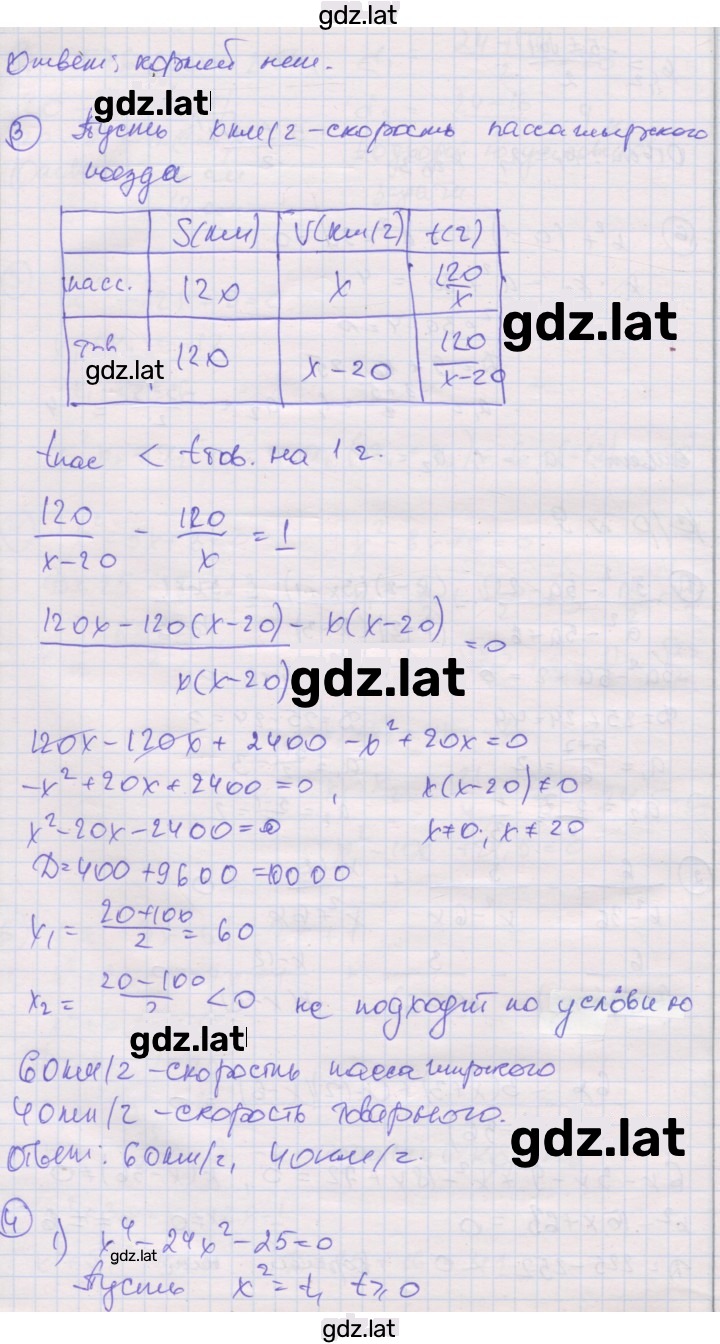 gdz.lat
Ответ: корней нет.
gdz.lat
3 Пусть х км/ч - скорость пассажирского
поезда
S(км) V(км/ч) t(ч)
пасс. 120 x 120/x
тов 120 x-20 120/x-20
gdz.lat
gdz.lat
tпас < tтов. на 1 ч.
120/x-20 - 120/x = 1
120x-120(x-20)-x(x-20)/x(x-20) =0
gdz.lat
120x-120x+2400-x²+20x=0
-x²+20x+2400=0, x(x-20)≠0
x²-20x-2400=0 x≠0; x≠20
D=400+9600=10000
x₁= 20+100/2 = 60
x₂= 20-100/2 <0 не подходит по условию
gdz.lat
60км/ч -скорость пассажирского
40км/ч -скорость товарного.
Ответ: 60км/ч, 40км/ч.
gdz.lat
4 1) x⁴-24x²-25=0
gdz.lat
Пусть x²=t, t≥0
gdz.lat